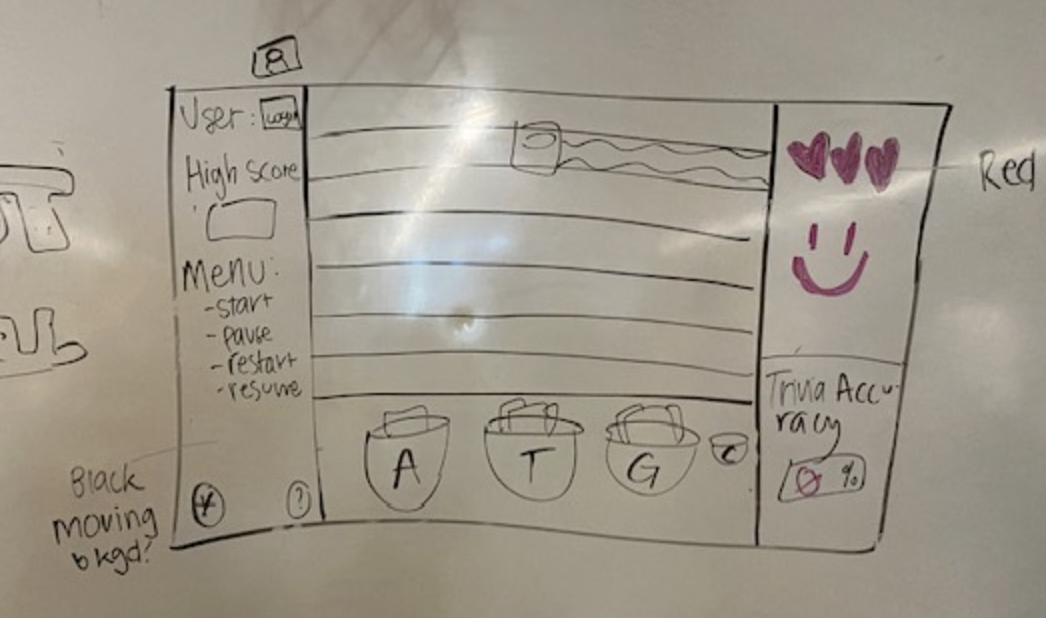 User: Login
High Score
Menu:
-start
-pause
-restart
-resume
?
Black
moving
bkgd?
A
T
G
C
Red
Trivia Accu-
racy
0 %